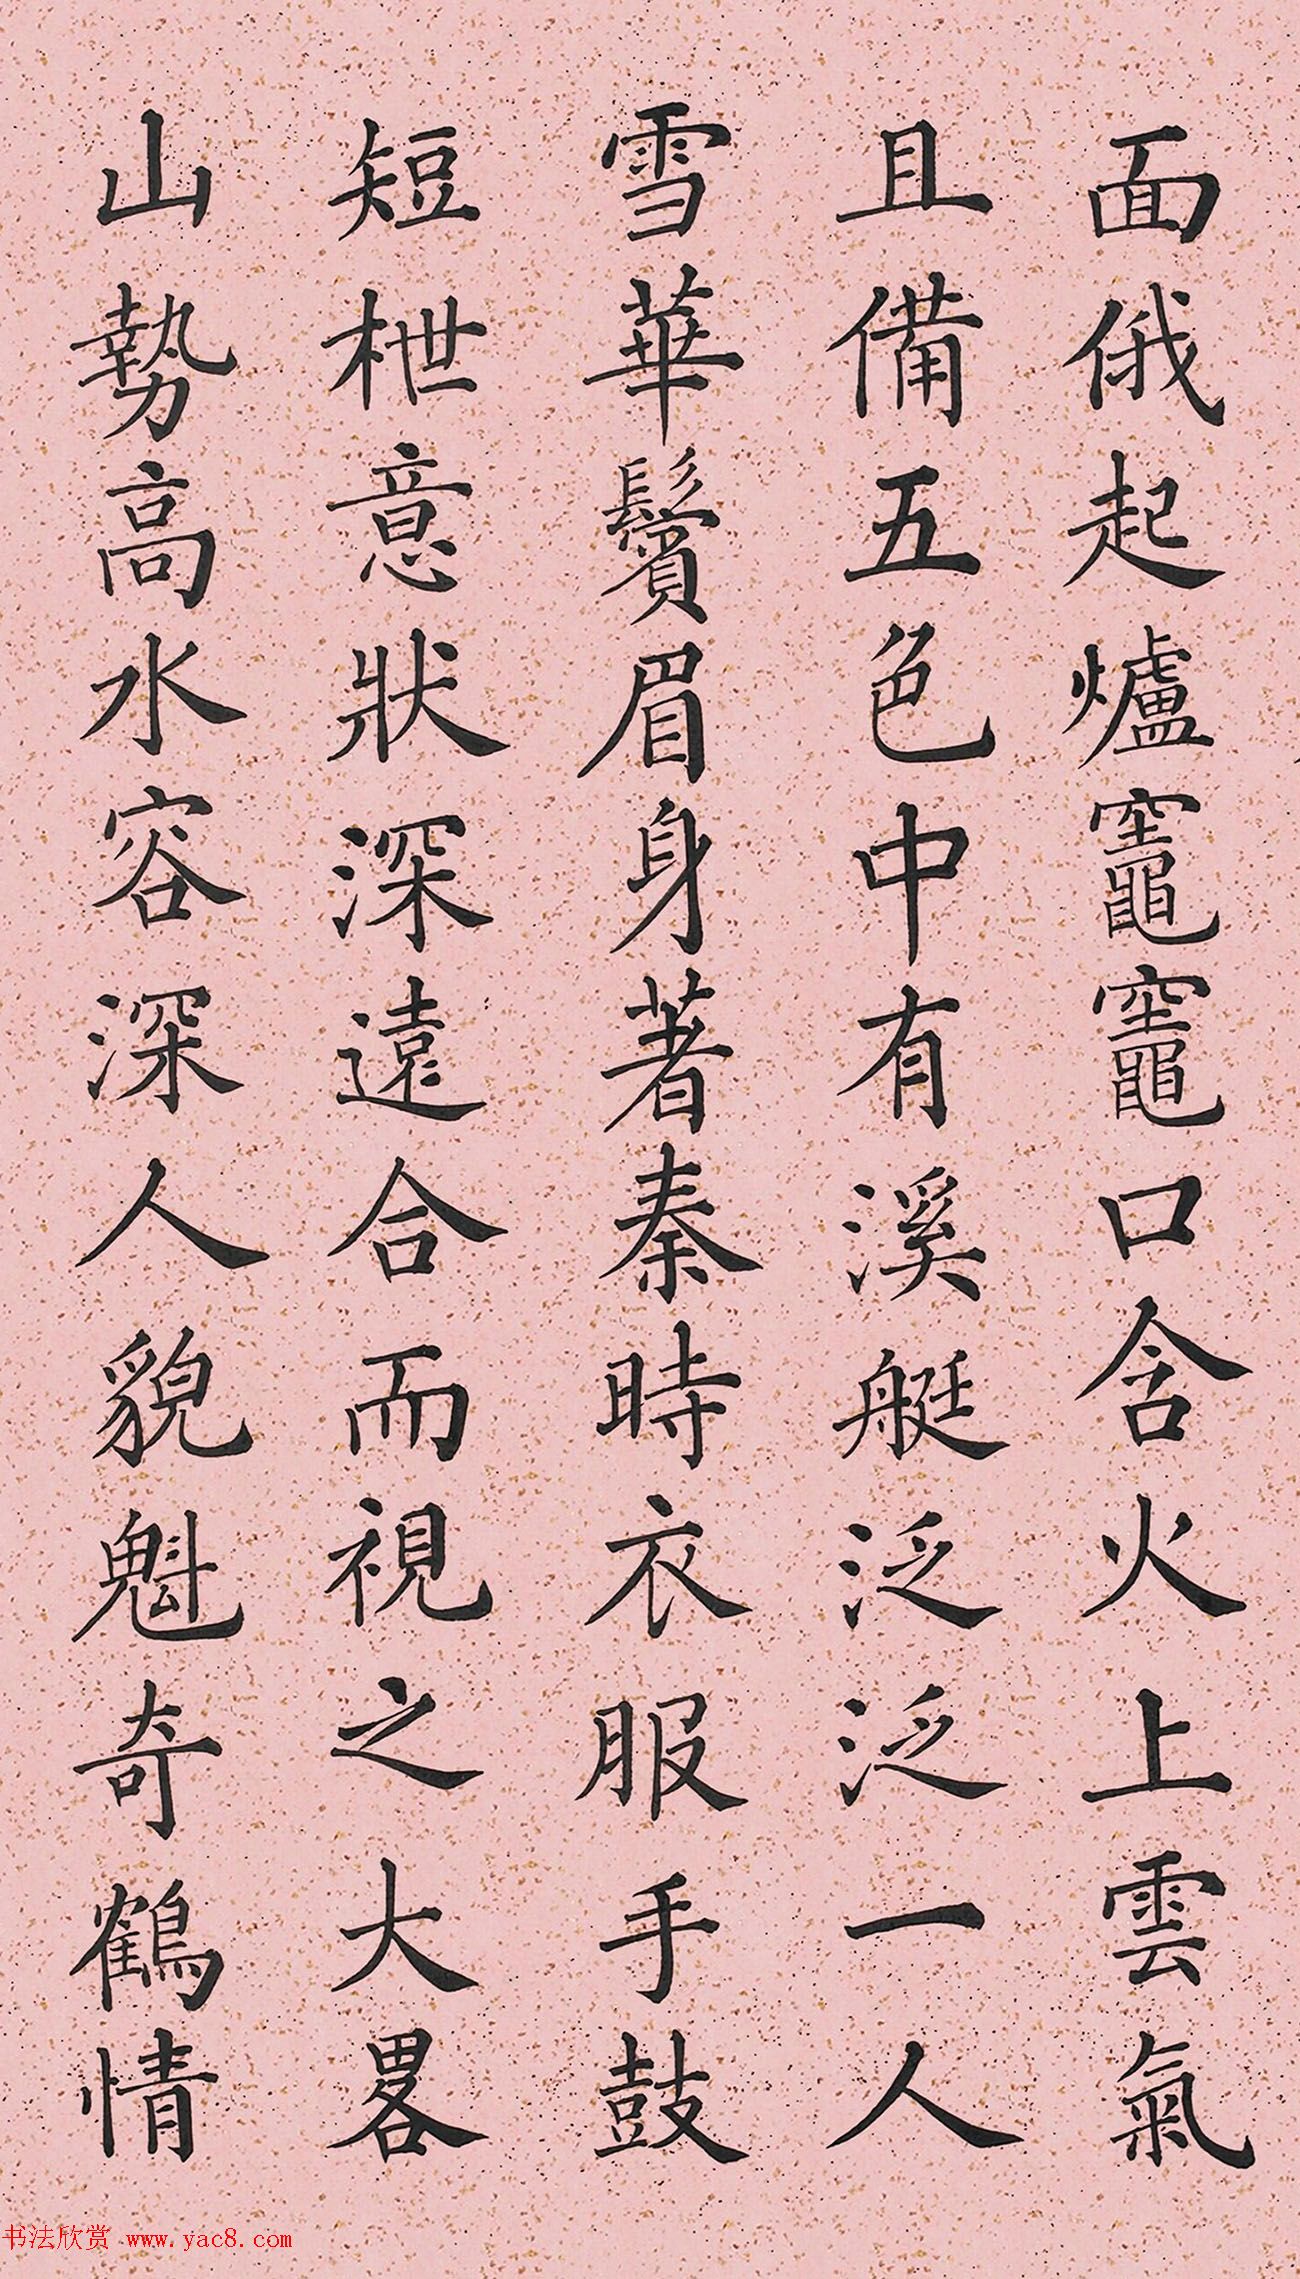 面俄起爐竈竈口含火上雲氣
且備五色中有溪艇泛泛一人
雪華鬢眉身著秦時衣服手鼓
短枻意狀深遠合而視之大畧
山勢高水容深人貌魁奇鶴情
书法欣赏 www.yac8.com